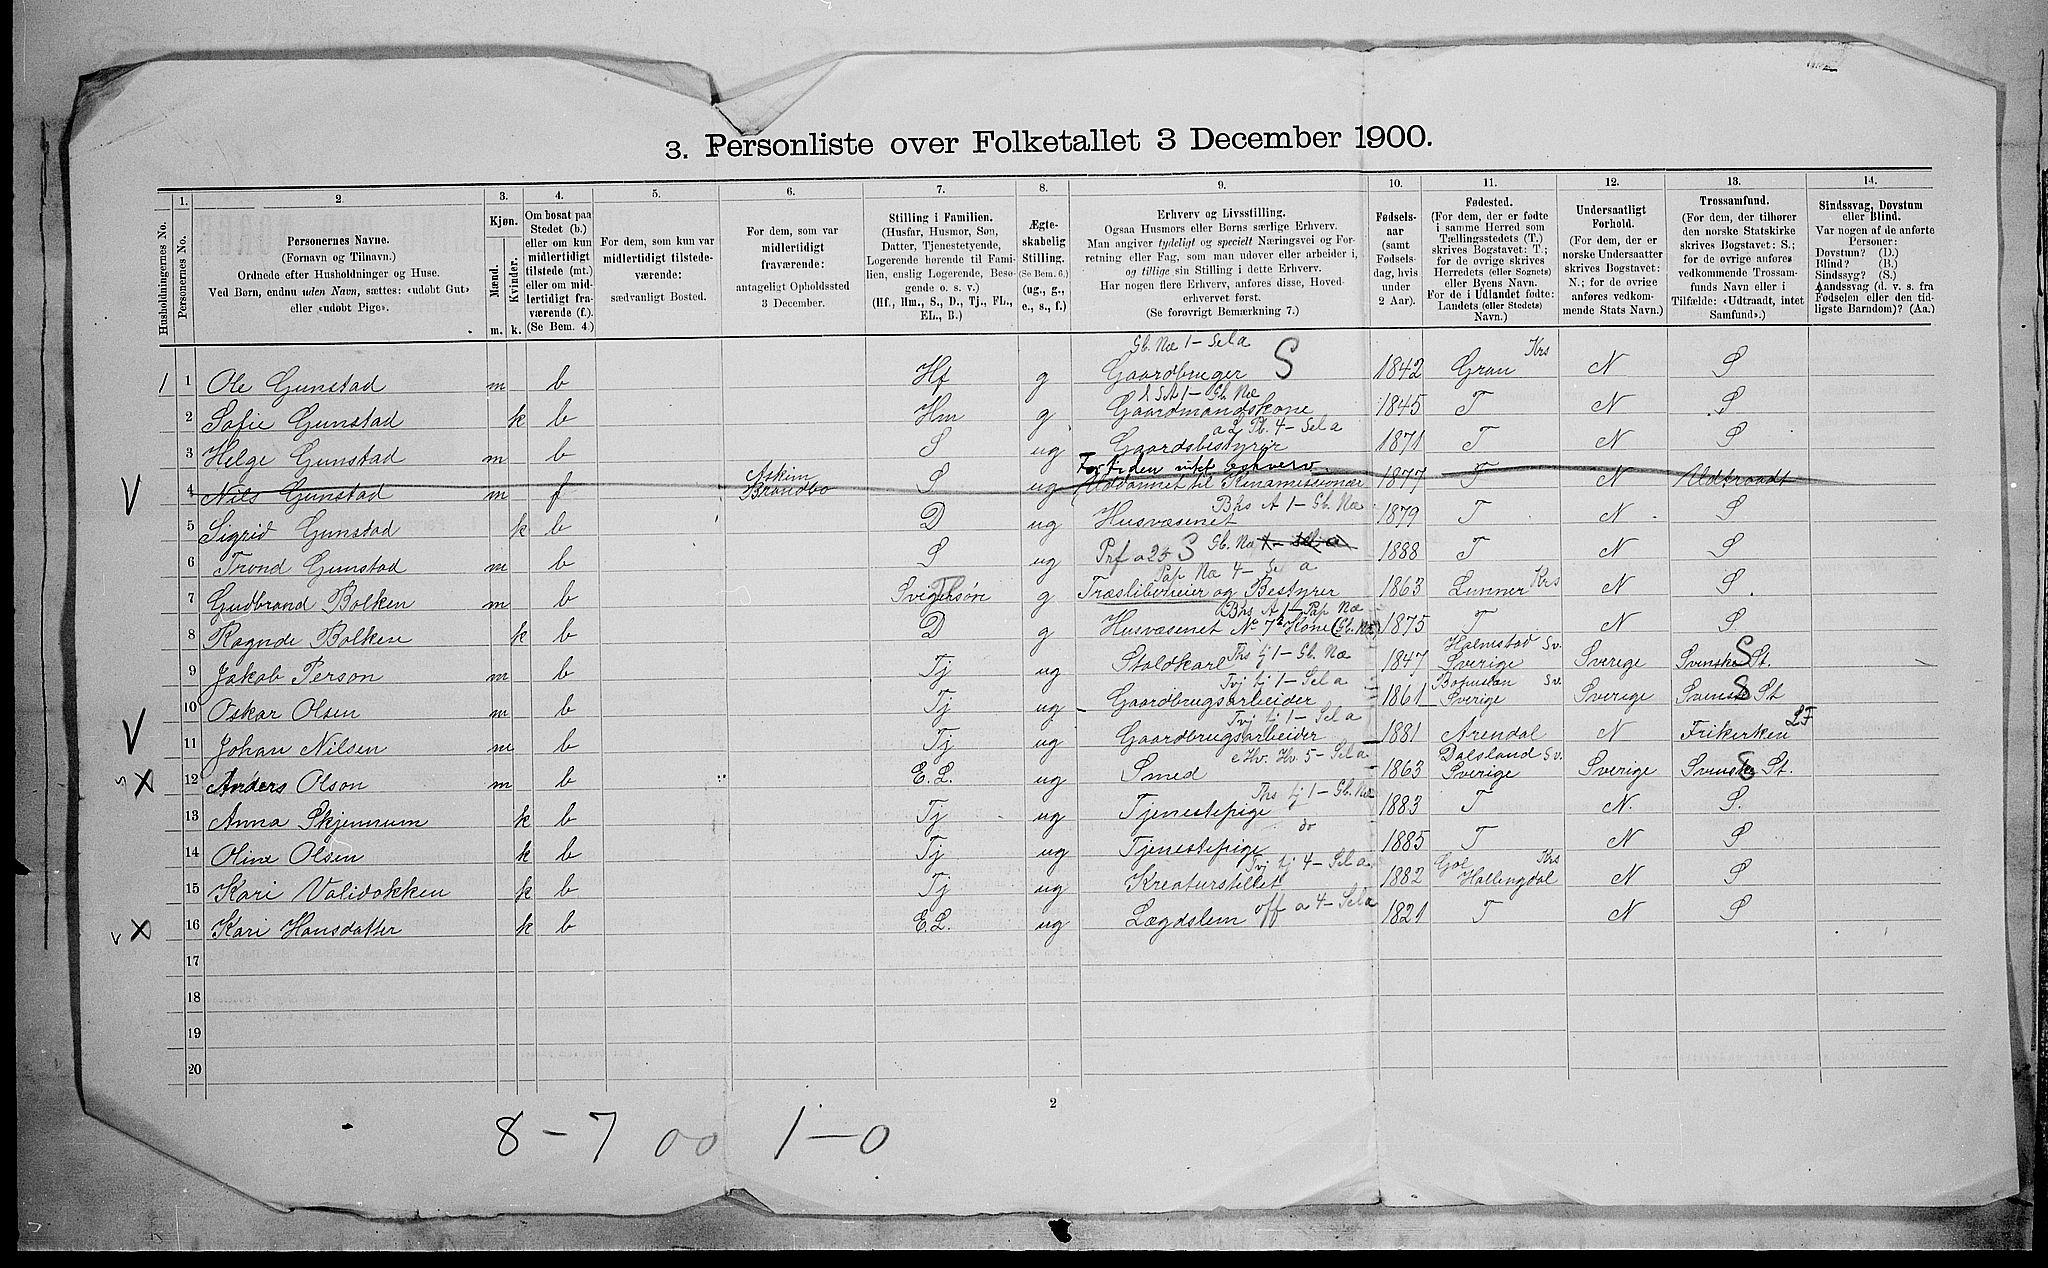 3. Personliste over Folketallet 3 December 1900.
Husholdningernes No.
1.
Personernes No.
2.
Personernes Navne.
(Fornavn og Tilnavn.)
Ordnede efter Husholdninger og Huse.
Ved Børn, endnu uden Navn, sættes: «udøbt Gut»
eller «udøbt Pige».
3.
Kjøn.
Mænd.
Kvinder.
m.
k.
4.
Om bosat paa
Stedet (b.)
eller om kun
midlertidigt
tilstede (mt.)
eller om mid-
lertidigt fra-
værende (f.).
(Se Bem. 4.)
5.
For dem, som kun var
midlertidigt tilstede-
værende:
sædvanligt Bosted.
6.
For dem, som var
midlertidigt
fraværende:
antageligt Opholdssted
3 December.
7.
Stilling i Familien.
(Husfar, Husmor, Søn,
Datter, Tjenestetyende,
Logerende hørende til Fami-
lien, enslig Logerende, Besø-
gende o. s. v.)
(Hf., Hm., S., D., Tj., FL.,
EL., B.)
8.
Ægte-
skabelig
Stilling.
(Se Bem. 6.)
(ug., g.,
e., s., f.)
9.
Erhverv og Livsstilling.
Ogsaa Husmors eller Børns særlige Erhverv.
Man angiver tydeligt og specielt Næringsvei og For-
retning eller Fag, som man udøver eller arbeider i,
og tillige sin Stilling i dette Erhverv.
Har nogen flere Erhverv, anføres disse, Hoved-
erhvervet først.
(Se forøvrigt Bemærkning 7.)
10.
Fødsels-
aar
(samt
Fødsels-
dag, hvis
under
2 Aar).
11.
Fødested.
(For dem, der er fødte
i samme Herred som
Tællingsstedets (T.)
skrives Bogstavet: T.;
for de øvrige skrives
Herredets (eller Sognets)
eller Byens Navn.
For de i Udlandet fødte:
Landets (eller Stedets)
Navn.)
12.
Undersaatligt
Forhold.
(For dem, der er
norske Undersaatter
skrives Bogstavet:
N.; for de øvrige
anføres vedkom-
mende Stats Navn.)
13.
Trossamfund.
(For dem, der tilhører
den norske Statskirke
skrives Bogstavet: S.;
for de øvrige anføres
vedkommende Trossam-
funds Navn eller i
Tilfælde: «Udtraadt, intet
Samfund».)
14.
Sindssvag, Døvstum
eller Blind.
Var nogen af de anførte
Personer:
Døvstum? (D.)
Blind? (B.)
Sindssyg? (S.)
Aandssvag (d. v. s. fra
Fødselen eller den tid-
ligste Barndom)? (Aa.)
Gb. Næ 1 - Sel a
1 1 Ole Gunstad m b Hf g Gaardbruger S 1842 Gran Krs N S
2 Sofie Gunstad k b Hm g Gaardmandskone 1845 T N S
3 Helge Gunstad m b S ug Gaardsbestyrer 1871 T N S
For tiden uden erhverv
V 4 Nils Gunstad m f Askim S ug Uddannet til 1877 T N Udtraadt
5 Sigrid Gunstad k b D ug Husvæsenet Bhs A 1 - Gb. Næ 1879 T N S
6 Trond Gunstad m b S ug S Gb. Næ 1888 T N S
Pap Næ 4 - Sel a
7 Gudbrand Bolken m b Svigersøn g Træsliberieier og Bestyrer 1863 Lunner Krs N S.
Bhs A 1 - Pap Næ
8 Ragnde Bolken k b D g Husvæsenet No 7s Kone (Gb. Næ) 1875 T N S.
9 Jakob Person m b Tj ug Staldkarl Ths tj 1 - Gb. Næ 1847 Halmstad Sv. Sverige Sverige Svenske St. S
Tvj tj 1 - Sel a
10 Oskar Olsen m b Tj ug Gaardbrugsarbeider 1861 Sv. Sverige Sverige Svenske St S
Tvj tj 1 - Sel a
V 11 Johan Nilsen m b Tj ug Gaardbrugsarbeider 1881 Arendal N Frikirken LF
Hv. 5 - Sel a
X 12 Anders Olson m b E.L. ug Smed 1863 Dalsland Sv. Sverige Sverige Svenske St. S
13 Anna Skjennum k b Tj ug Tjenestepige Ths tj 1 - Gb. Næ 1883 T N. S.
14 Oline Olsen k b Tj ug Tjenestepige do 1885 T N S
Tvj tj 4 - Sel a
15 Kari Validokken k b Tj ug Kreaturstellet 1882 Gol Hallingdal Krs N S
X 16 Kari Hansdatter k b E.L. ug Lægdslem off a 4 - Sel a 1821 T N S
17
18
19
20
2
8 - 7 00 1 - 0